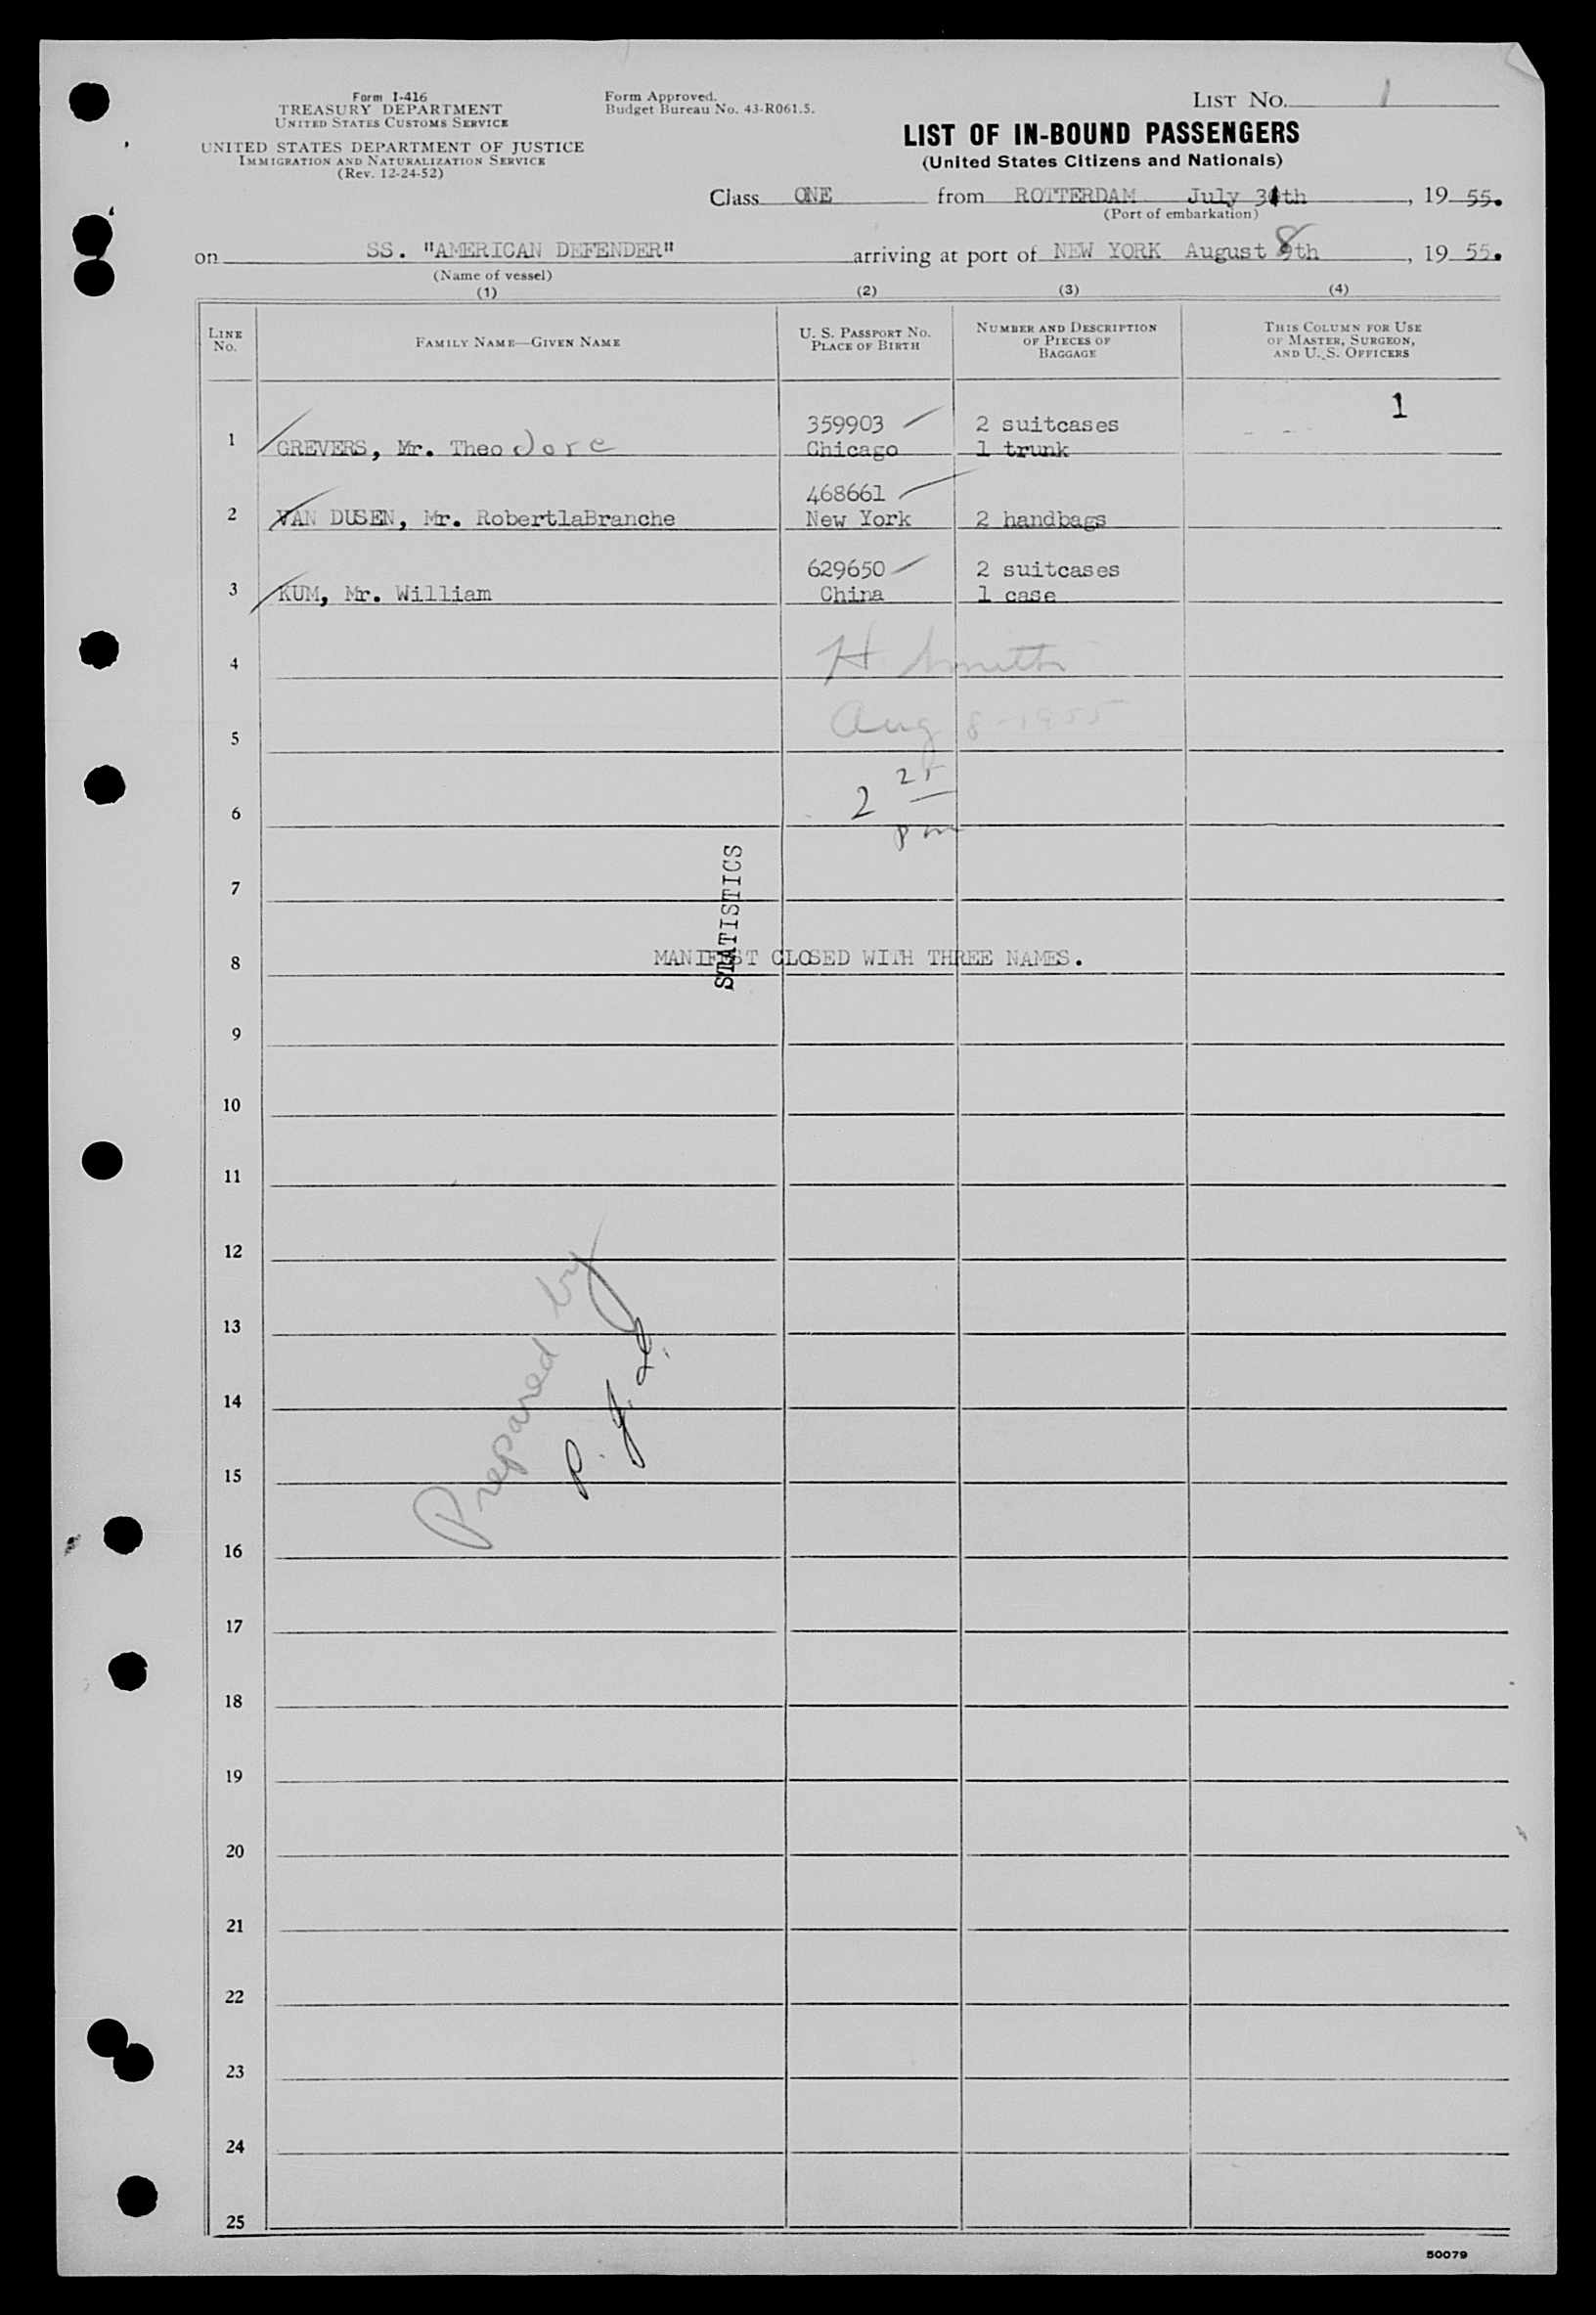 Form I-416
TREASURY DEPARTMENT
UNITED STATES CUSTOMS SERVICE
UNITED STATES DEPARTMENT OF JUSTICE
IMMIGRATION AND NATURALIZATION SERVICE
(Rev. 12-24-52)
Form Approved.
Budget Bureau No. 43-R061.5.
LIST NO. 1
LIST OF IN-BOUND PASSENGERS
(United States Citizens and Nationals)
Class ONE from ROTTERDAM July 31th, 19 55.
(Port of embarkation)
on SS. "AMERICAN DEFENDER" arriving at port of NEW YORK August 8th, 19 55.
(Name of vessel)
(1) (2) (3) (4)
LINE NO. FAMILY NAME—GIVEN NAME U. S. PASSPORT NO. PLACE OF BIRTH NUMBER AND DESCRIPTION OF PIECES OF BAGGAGE THIS COLUMN FOR USE OF MASTER, SURGEON, AND U. S. OFFICERS
1
359903 2 suitcases
1 GREVERS, Mr. Theodore Chicago 1 trunk
468661
2 VAN DUSEN, Mr. RobertlaBranche New York 2 handbags
629650 2 suitcases
3 KUM, Mr. William China 1 case
4 H. Smith
5 Aug 8-1955
6 2 25
pm
7
STATISTICS
8 MANIFEST CLOSED WITH THREE NAMES.
9
10
11
12
13
14
15
16
Prepared by
17
18
19
20
21
22
23
24
25
50079